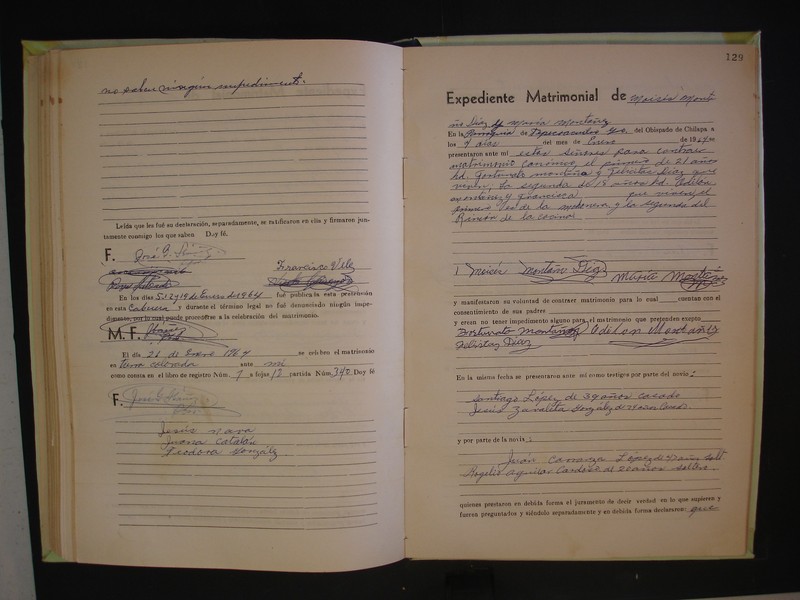 no saben ningún impedimento.
Leída que les fué su declaración, separadamente, se ratificaron en ella y firmaron jun-
tamente conmigo los que saben Doy fé.
F. José
Francisco
En los días 5, 12 y 19 de Enero de 1964 fué pública esta pretensión
en esta Cabecera y durante el término legal no fué denunciado ningún impe-
dimento, por lo cual puede procederse a la celebración del matrimonio.
M. F.
El día 26 de Enero 1964 se celebró el matrimonio
en tierra colorada ante mí
como consta en el libro de registro Núm. 7 a fojas 12 partida Núm. 340 Doy fé
F.
Jesús Nava
Juana Catalán
Teodora González
129
Expediente Matrimonial de Moisés Monta
ño Díaz y María Montáñez
En la Parroquia de del Obispado de Chilapa a
los 9 días del mes de Enero de 1964
presentaron ante mí estos señores para contraer
matrimonio canónico, el primero de 21 años
hd. Fortunato montaño y Felicitas Díaz que
la segunda de 18 años hd. Odilon
montáñez y Francisca que vienen, el
primero Veo. de la y la segunda del
Rincón de la cocina
Moisés Montaño Díaz María Montáñez
y manifestaron su voluntad de contraer matrimonio para lo cual cuentan con el
consentimiento de sus padres
y creen no tener impedimento alguno para el matrimonio que pretenden excepto
Fortunato Montaño Odilon Montañez
Felicitas Díaz
En la misma fecha se presentaron ante mí como testigos por parte del novio:
Santiago López de 39 años casado
Jesús Zavaleta González de 29 años Casado
y por parte de la novia:
Juan Carranza López de años Solt
Rogelio Aguilar Cardoso de 20 años soltero
quienes prestaron en debida forma el juramento de decir verdad en lo que supieren y
fueren preguntados y siéndolo separadamente y en debida forma declararon: que